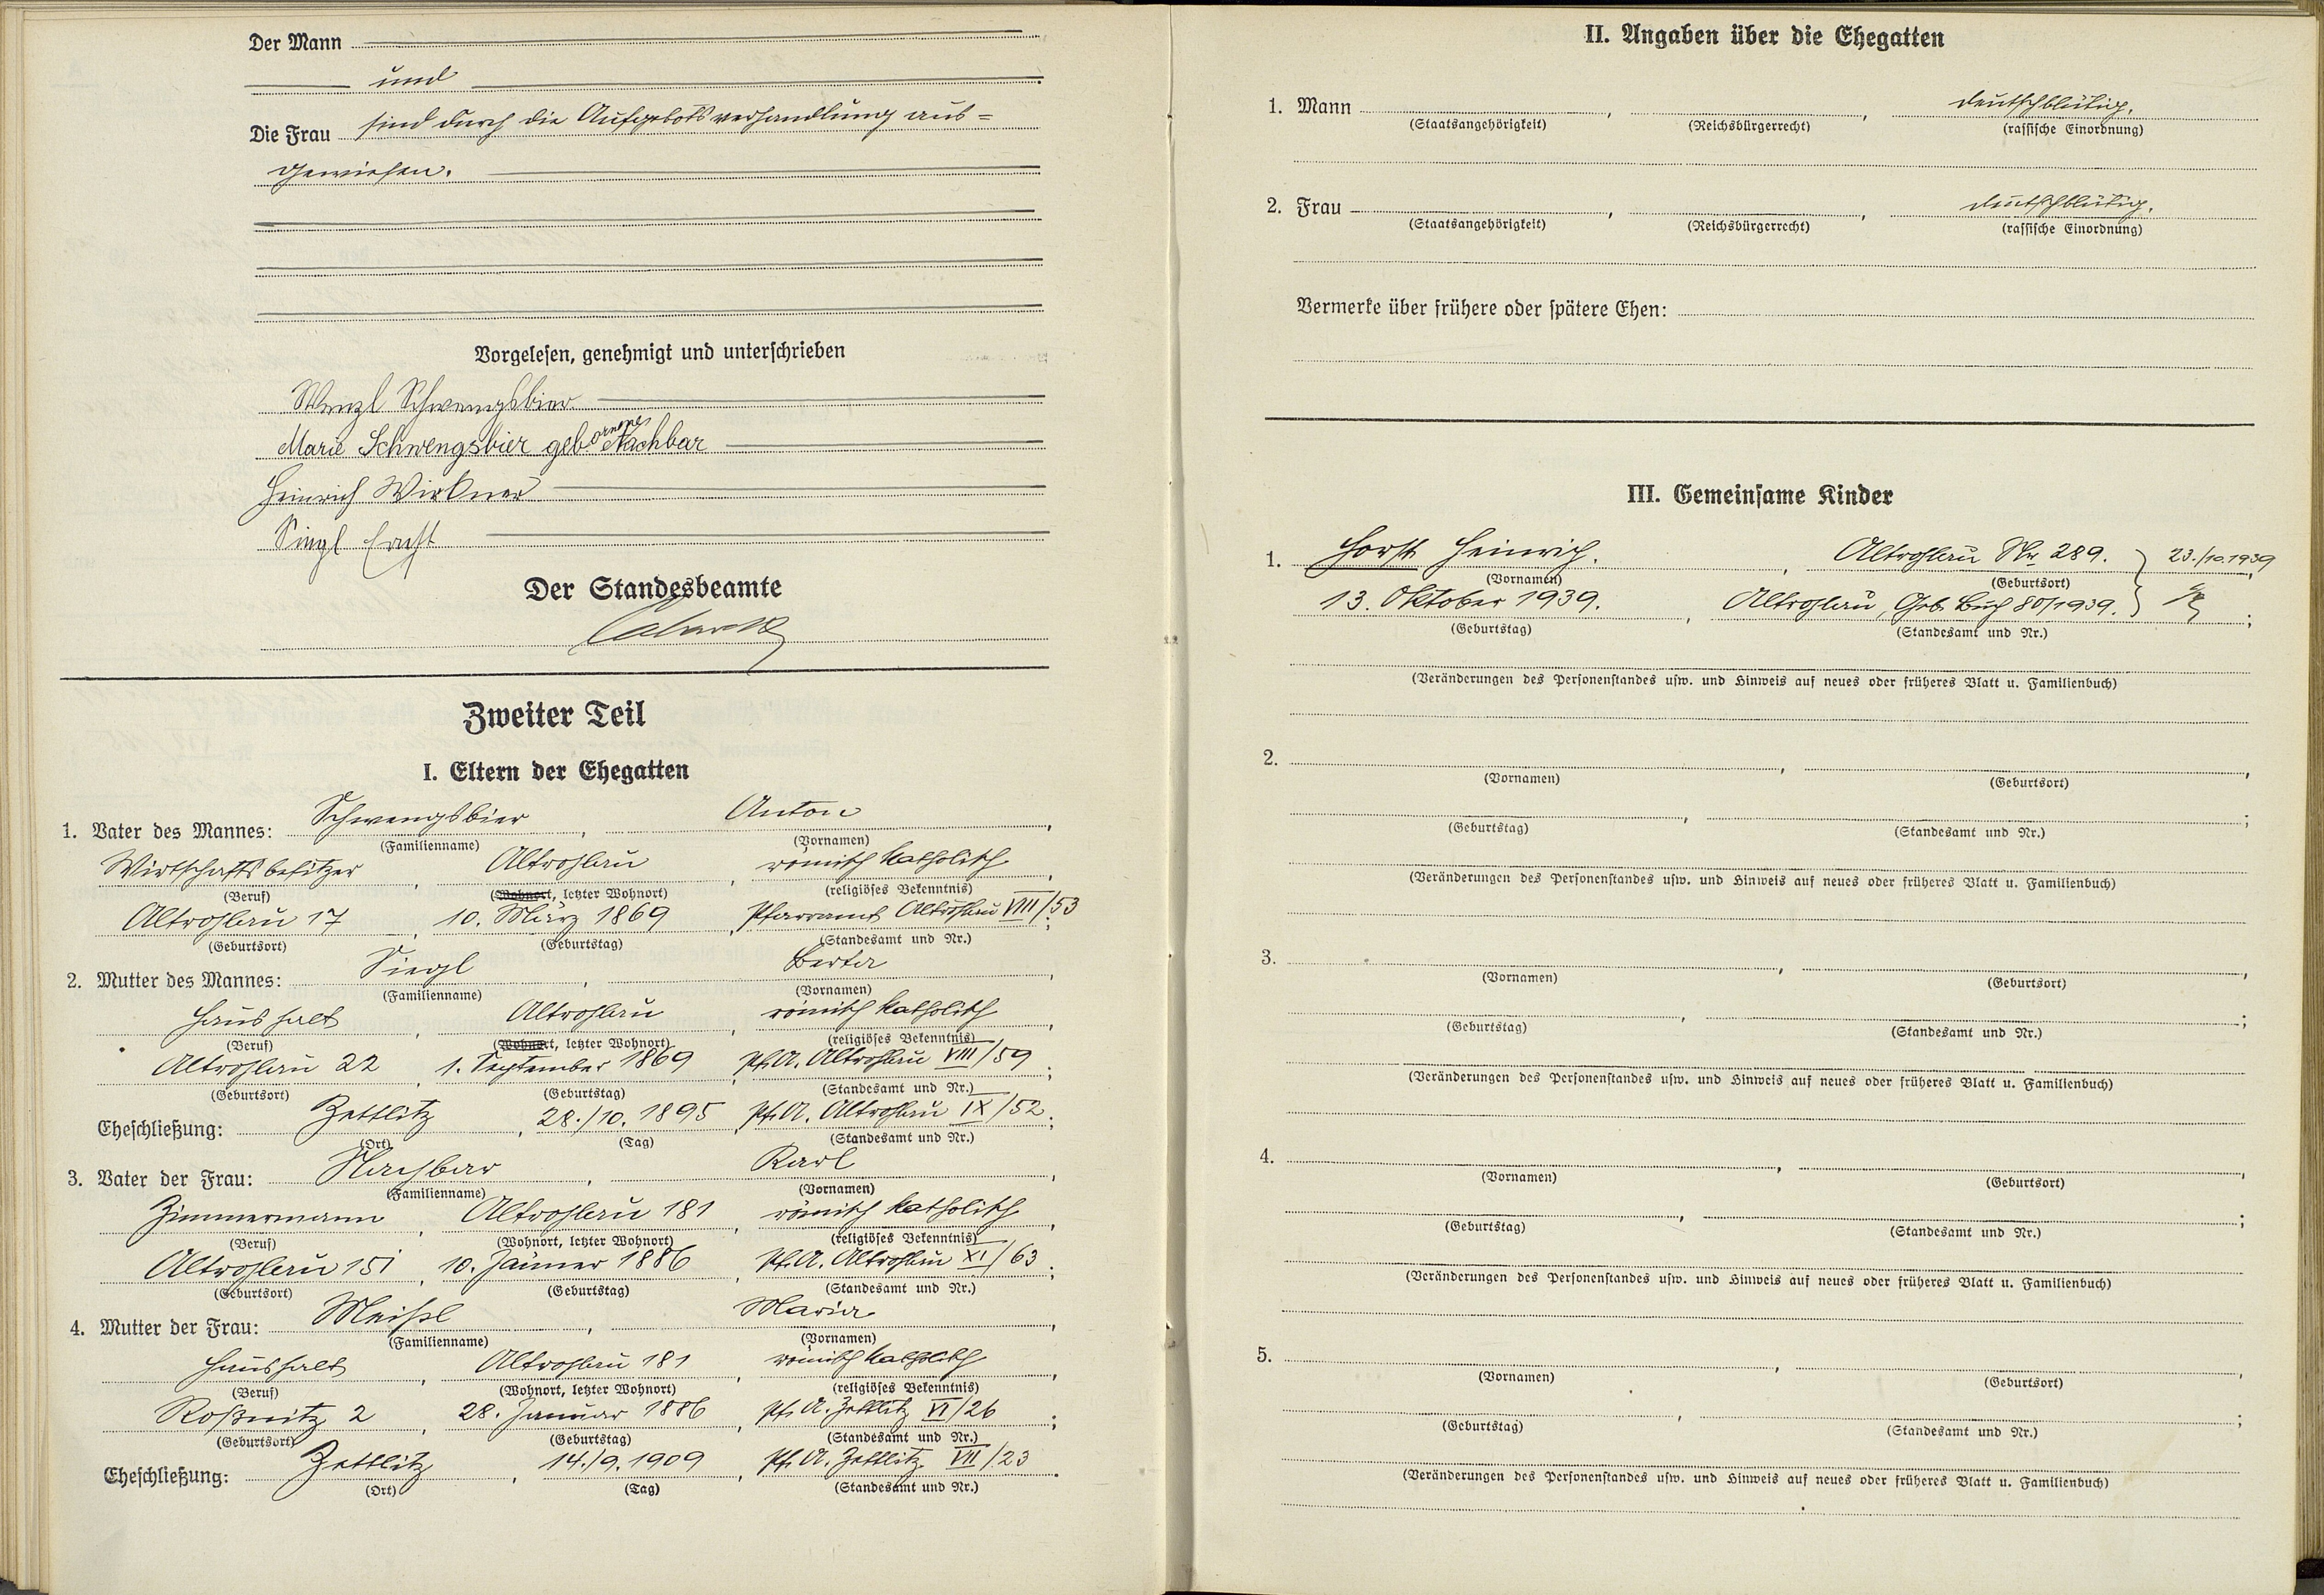 Der Mann
und
Die Frau sind durch die Aufgebotsverhandlung aus=
gewiesen.
Vorgelesen, genehmigt und unterschrieben
Wenzl Schwengsbier
Marie Schwengsbier geborenene Nachbar
Heinrich Wirkner
Siegl Ernst
Der Standesbeamte
Zweiter Teil
I. Eltern der Ehegatten
1. Vater des Mannes: Schwengsbier, Anton,
(Familienname) (Vornamen)
Wirtschaftsbesitzer, Altrohlau, römisch katholisch,
(Beruf) (Wohnort, letzter Wohnort) (religiöses Bekenntnis)
Altrohlau 17, 10. März 1869, Pfarramt Altrohlau VIII/53;
(Geburtsort) (Geburtstag) (Standesamt und Nr.)
2. Mutter des Mannes: Siegl, Berta,
(Familienname) (Vornamen)
Haushalt, Altrohlau, römisch katholisch,
(Beruf) (Wohnort, letzter Wohnort) (religiöses Bekenntnis)
Altrohlau 22, 1. September 1869, Pf. A. Altrohlau VIII/59;
(Geburtsort) (Geburtstag) (Standesamt und Nr.)
Eheschließung: Zettlitz, 28./10. 1895, Pf. A. Altrohlau IX/52;
(Ort) (Tag) (Standesamt und Nr.)
3. Vater der Frau: Nachbar, Karl,
(Familienname) (Vornamen)
Zimmermann, Altrohlau 181, römisch katholisch,
(Beruf) (Wohnort, letzter Wohnort) (religiöses Bekenntnis)
Altrohlau 151, 10. Jänner 1886, Pf. A. Altrohlau XI/63;
(Geburtsort) (Geburtstag) (Standesamt und Nr.)
4. Mutter der Frau: Meißl, Maria,
(Familienname) (Vornamen)
Haushalt, Altrohlau 181, römisch katholisch,
(Beruf) (Wohnort, letzter Wohnort) (religiöses Bekenntnis)
Roßnitz 2, 28. Januar 1886, Pf. A. Zettlitz VI/26;
(Geburtsort) (Geburtstag) (Standesamt und Nr.)
Eheschließung: Zettlitz, 14./9. 1909, Pf. A. Zettlitz VII/23.
(Ort) (Tag) (Standesamt und Nr.)
II. Angaben über die Ehegatten
1. Mann , , deutschblütig.
(Staatsangehörigkeit) (Reichsbürgerrecht) (rassische Einordnung)
2. Frau , , deutschblütig.
(Staatsangehörigkeit) (Reichsbürgerrecht) (rassische Einordnung)
Vermerke über frühere oder spätere Ehen:
III. Gemeinsame Kinder
1. Horst Heinrich. , Altrohlau Nr 289. } 23./10.1939,
(Vornamen) (Geburtsort)
13. Oktober 1939. , Altrohlau, Geb. Buch 80/1939. } ;
(Geburtstag) (Standesamt und Nr.)
(Veränderungen des Personenstandes usw. und Hinweis auf neues oder früheres Blatt u. Familienbuch)
2. , ,
(Vornamen) (Geburtsort)
, ;
(Geburtstag) (Standesamt und Nr.)
(Veränderungen des Personenstandes usw. und Hinweis auf neues oder früheres Blatt u. Familienbuch)
3. , ,
(Vornamen) (Geburtsort)
, ;
(Geburtstag) (Standesamt und Nr.)
(Veränderungen des Personenstandes usw. und Hinweis auf neues oder früheres Blatt u. Familienbuch)
4. , ,
(Vornamen) (Geburtsort)
, ;
(Geburtstag) (Standesamt und Nr.)
(Veränderungen des Personenstandes usw. und Hinweis auf neues oder früheres Blatt u. Familienbuch)
5. , ,
(Vornamen) (Geburtsort)
, ;
(Geburtstag) (Standesamt und Nr.)
(Veränderungen des Personenstandes usw. und Hinweis auf neues oder früheres Blatt u. Familienbuch)